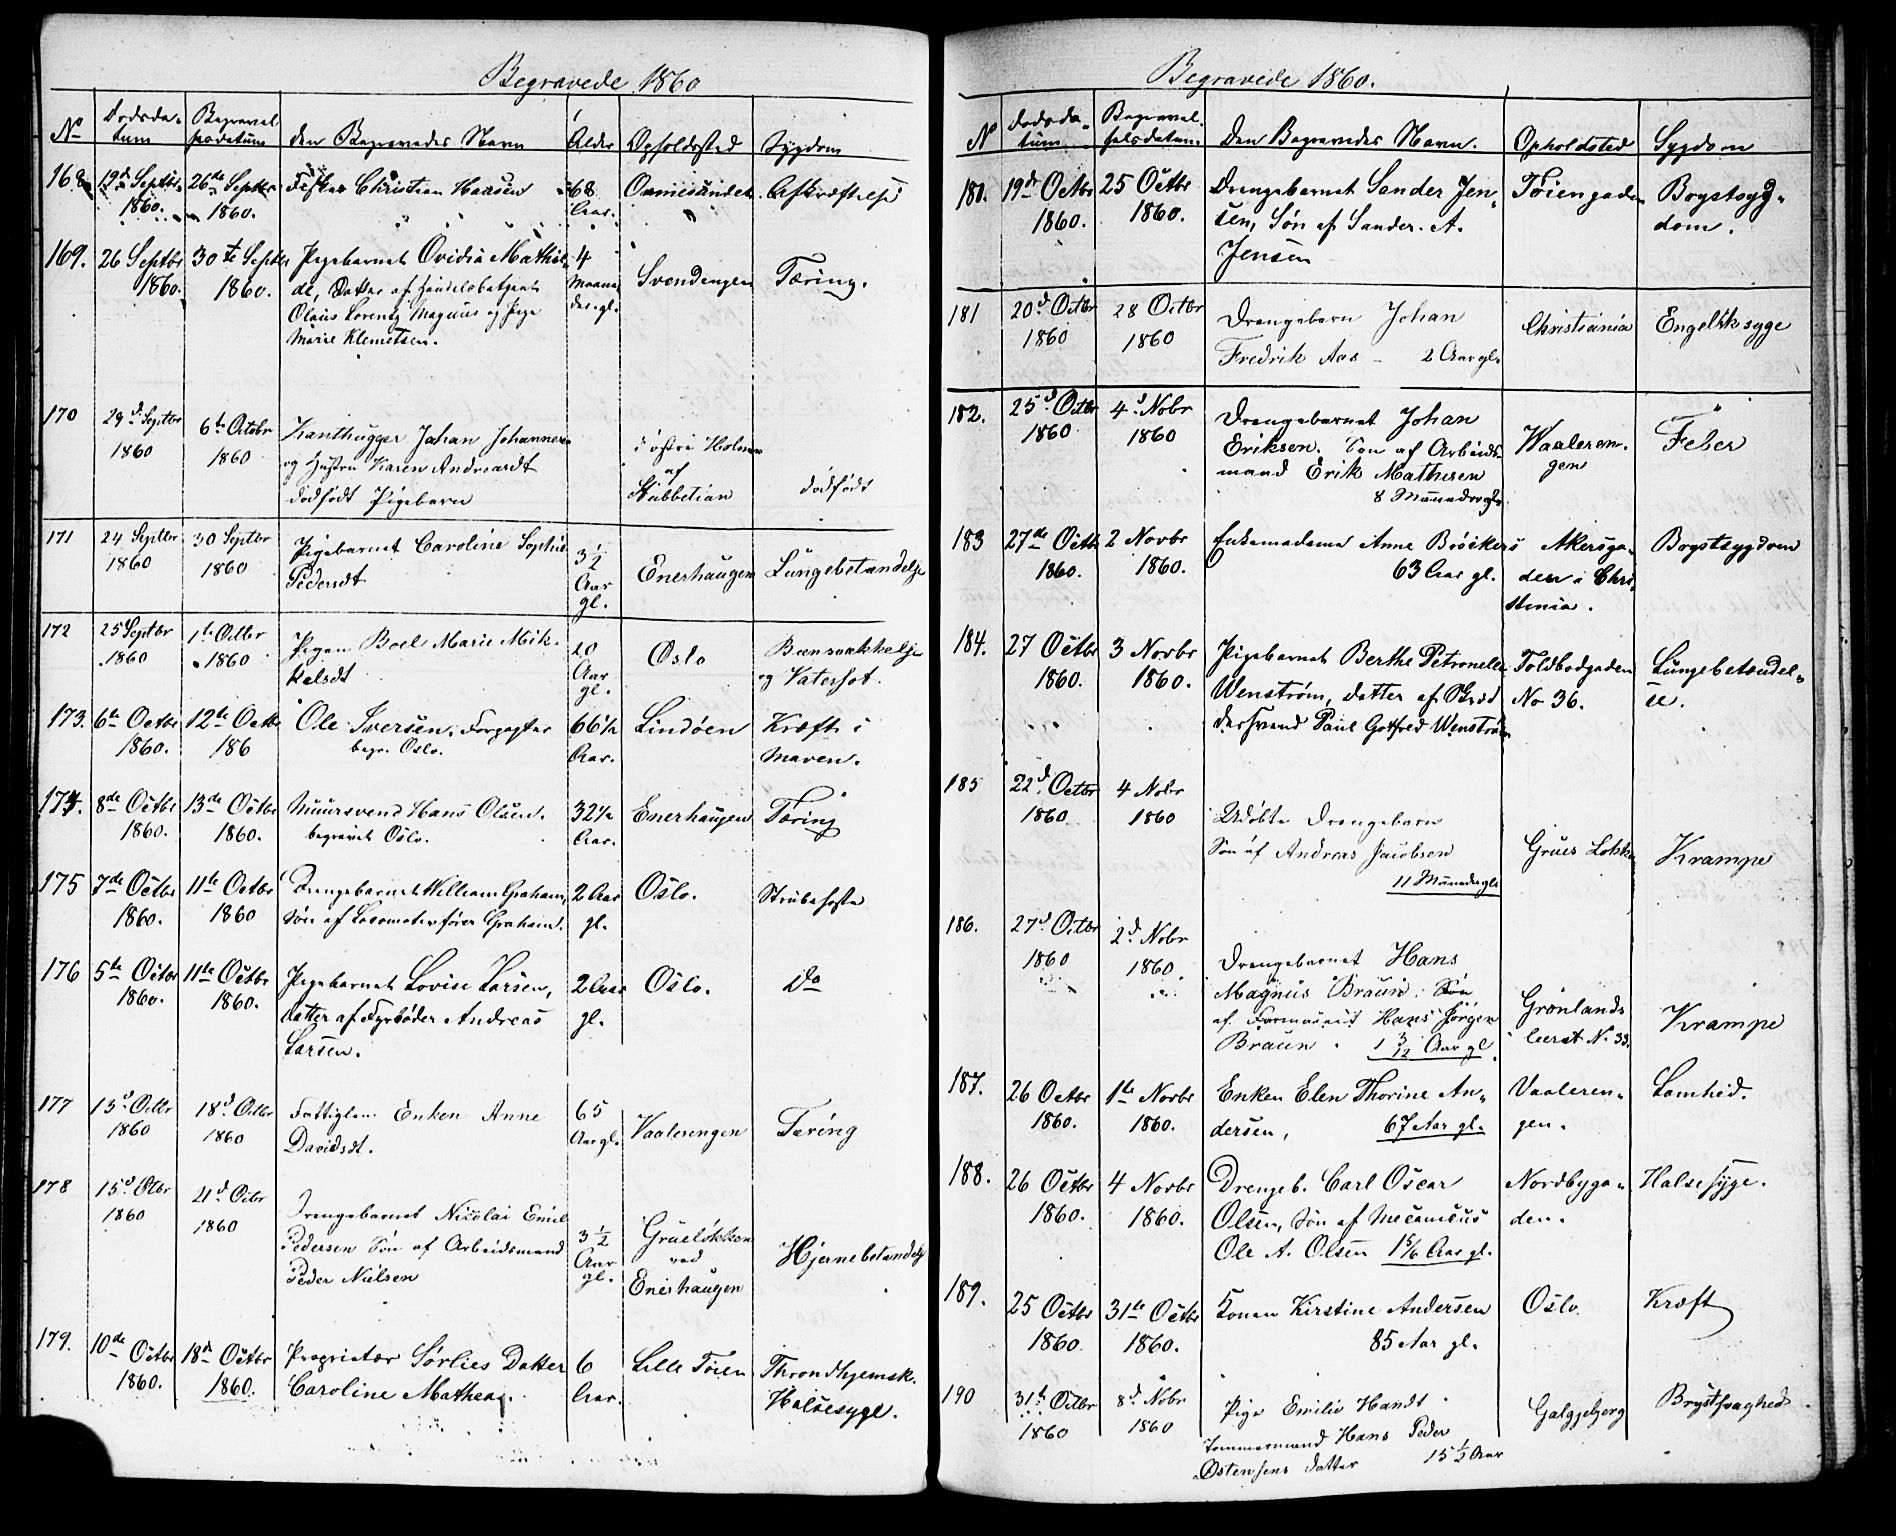 Begravede 1860
No Dødsdatum Begravelsesdatum den Begravedes Navn Alder Opholdssted Sygdom
168. 19de Septbr 1860. 26de Septbr 1860. Fisker Christian Hansen 68 Aar. Ormesundet Afkræftelse
169. 26 Septbr 1860. 30te Septbr 1860. Pigebarnet Ovidia Mathil-
de, Datter af Handelsbetjent
Olaus Lorentz Magnus og Pige
Marie Klemetsen.
4 Maane-
der gl. Svendengen Tæring.
170 29d Septbr 1860 6te Octobr 1860 Kanthugger Johan Johannesen
og Hustru Karen Andreasdt
dødfødt Pigebarn
i østre Holmen
af
Stubbetian dødfødt
171 24 Septbr 1860 30 Septbr 1860 Pigebarnet Caroline Sophie
Pedersdt
3½
Aar
gl. Enerhaugen Lungebetændelse
172 25 Septbr 1860 1te Octbr 1860 Pigen Boel Marie Mik-
kelsdt
20
Aar
gl. Oslo Beensvækkelse
og Vatersot.
173. 6te Octbr 1860. 12te Octbr 186 Ole Iversen, Forpagter
begr. Oslo.
66½
Aar. Lindøen Kræft i
Maven.
174. 8de Octbr 1860. 13de Octbr 1860. Muursvend Hans Olsen.
begravet Oslo.
32½
Aar. Enerhaugen Tæring
175 7de Octbr 1860. 11te Octbr 1860 Drengebarnet William Graham,
Søn af Locomotivfører Graham.
2 Aar
gl. Oslo. Strubehoste
176 5te Octbr 1860. 11te Octbr 1860. Pigebarnet Lovise Larsen,
datter af Fyrbøder Andreas
Larsen.
2 Aar
gl. Oslo. Do
177 13d Octbr 1860 18d Octbr 1860 Fattiglem Enken Anne
Davidsdt.
65
Aar gl. Vaalerengen Tæring
178 15d Octbr 1860 21d Octbr 1860 Drengebarnet Nicolai Emil
Pedersen Søn af Arbeidsmand
Peder Nielsen
3½
Aar
gl. Grueløkken
ved
Enerhaugen Hjernebetændelse
179. 10de Octbr 1860. 18de Octbr 1860. Proprietær Sørlies Datter
Caroline Mathea.
6
Aar. Lille Tøien Throndhjemsk.
Halsesyge.
Begravede 1860.
N Dødsdatum Begravelsesdatum Den Begravedes Navn. Opholdsted Sygdom
180. 19de Octbr 1860. 25 Octbr 1860. Drengebarnet Sander Jen-
sen, Søn af Sander. A.
Jensen
Tøiengaden Brystsyg-
dom.
181 20d Octbr 1860 28 Octbr 1860 Drengebarn Johan
Fredrik Aas - 2 Aar gl.
Christiania Engelsksyge
182. 25d Octbr 1860 4d Nobr 1860 Drengebarnet Johan
Eriksen. Søn af Arbeids-
mand Erik Mathisen
8 Maaneder gl.
Waaleren-
gen Feber
183 27de Octbr 1860. 2 Novbr 1860. Enkemadame Anne Brockers
63 Aar gl.
Akersga-
den i Chri-
stania. Brystsygdom
184. 27 Octbr 1860. 3 Novbr 1860. Pigebarnet Berthe Petronelle
Wenstrøm, datter af Skræd-
dersvend Paul Gotfred Wenstrøm
Toldbodgaden
No 36. Lungebetændel-
se.
185 22d Octbr 1860 4 Nobr 1860 Udøbte Drengebarn
Søn af Andreas Jacobsen
11 Maaneder gl.
Grues Løkke Krampe
186. 27d Octbr 1860 2d Nobr 1860. Drengebarnet Hans
Magnus Braun. Søn
af Hans Jørgen
Braun. 1 3/12 Aar gl.
Grønlands
leeret N. 33. Krampe
187. 26 Octbr 1860. 1te Novbr 1860. Enken Elen Thorine An-
dersen, 67 Aar gl.
Vaaleren-
gen. Lamhed.
188. 26 Octbr 1860. 4 Novbr 1860. Drengeb. Carl Oscar
Olsen, Søn af Mecanicus
Ole A. Olsen 1 5/6 Aar gl.
Nordbyga-
den. Halsesyge.
189. 25 Octbr 1860. 31te Octbr 1860. Konen Kirstine Andersen
85 Aar gl.
Oslo. Kræft
190 31te Octbr 1860 8d Nobr 1860 Pige Emilie Handt
Tømmermand Hans Peder
Østensens datter 15½ Aar
Galgjebjerg Brystsvaghed